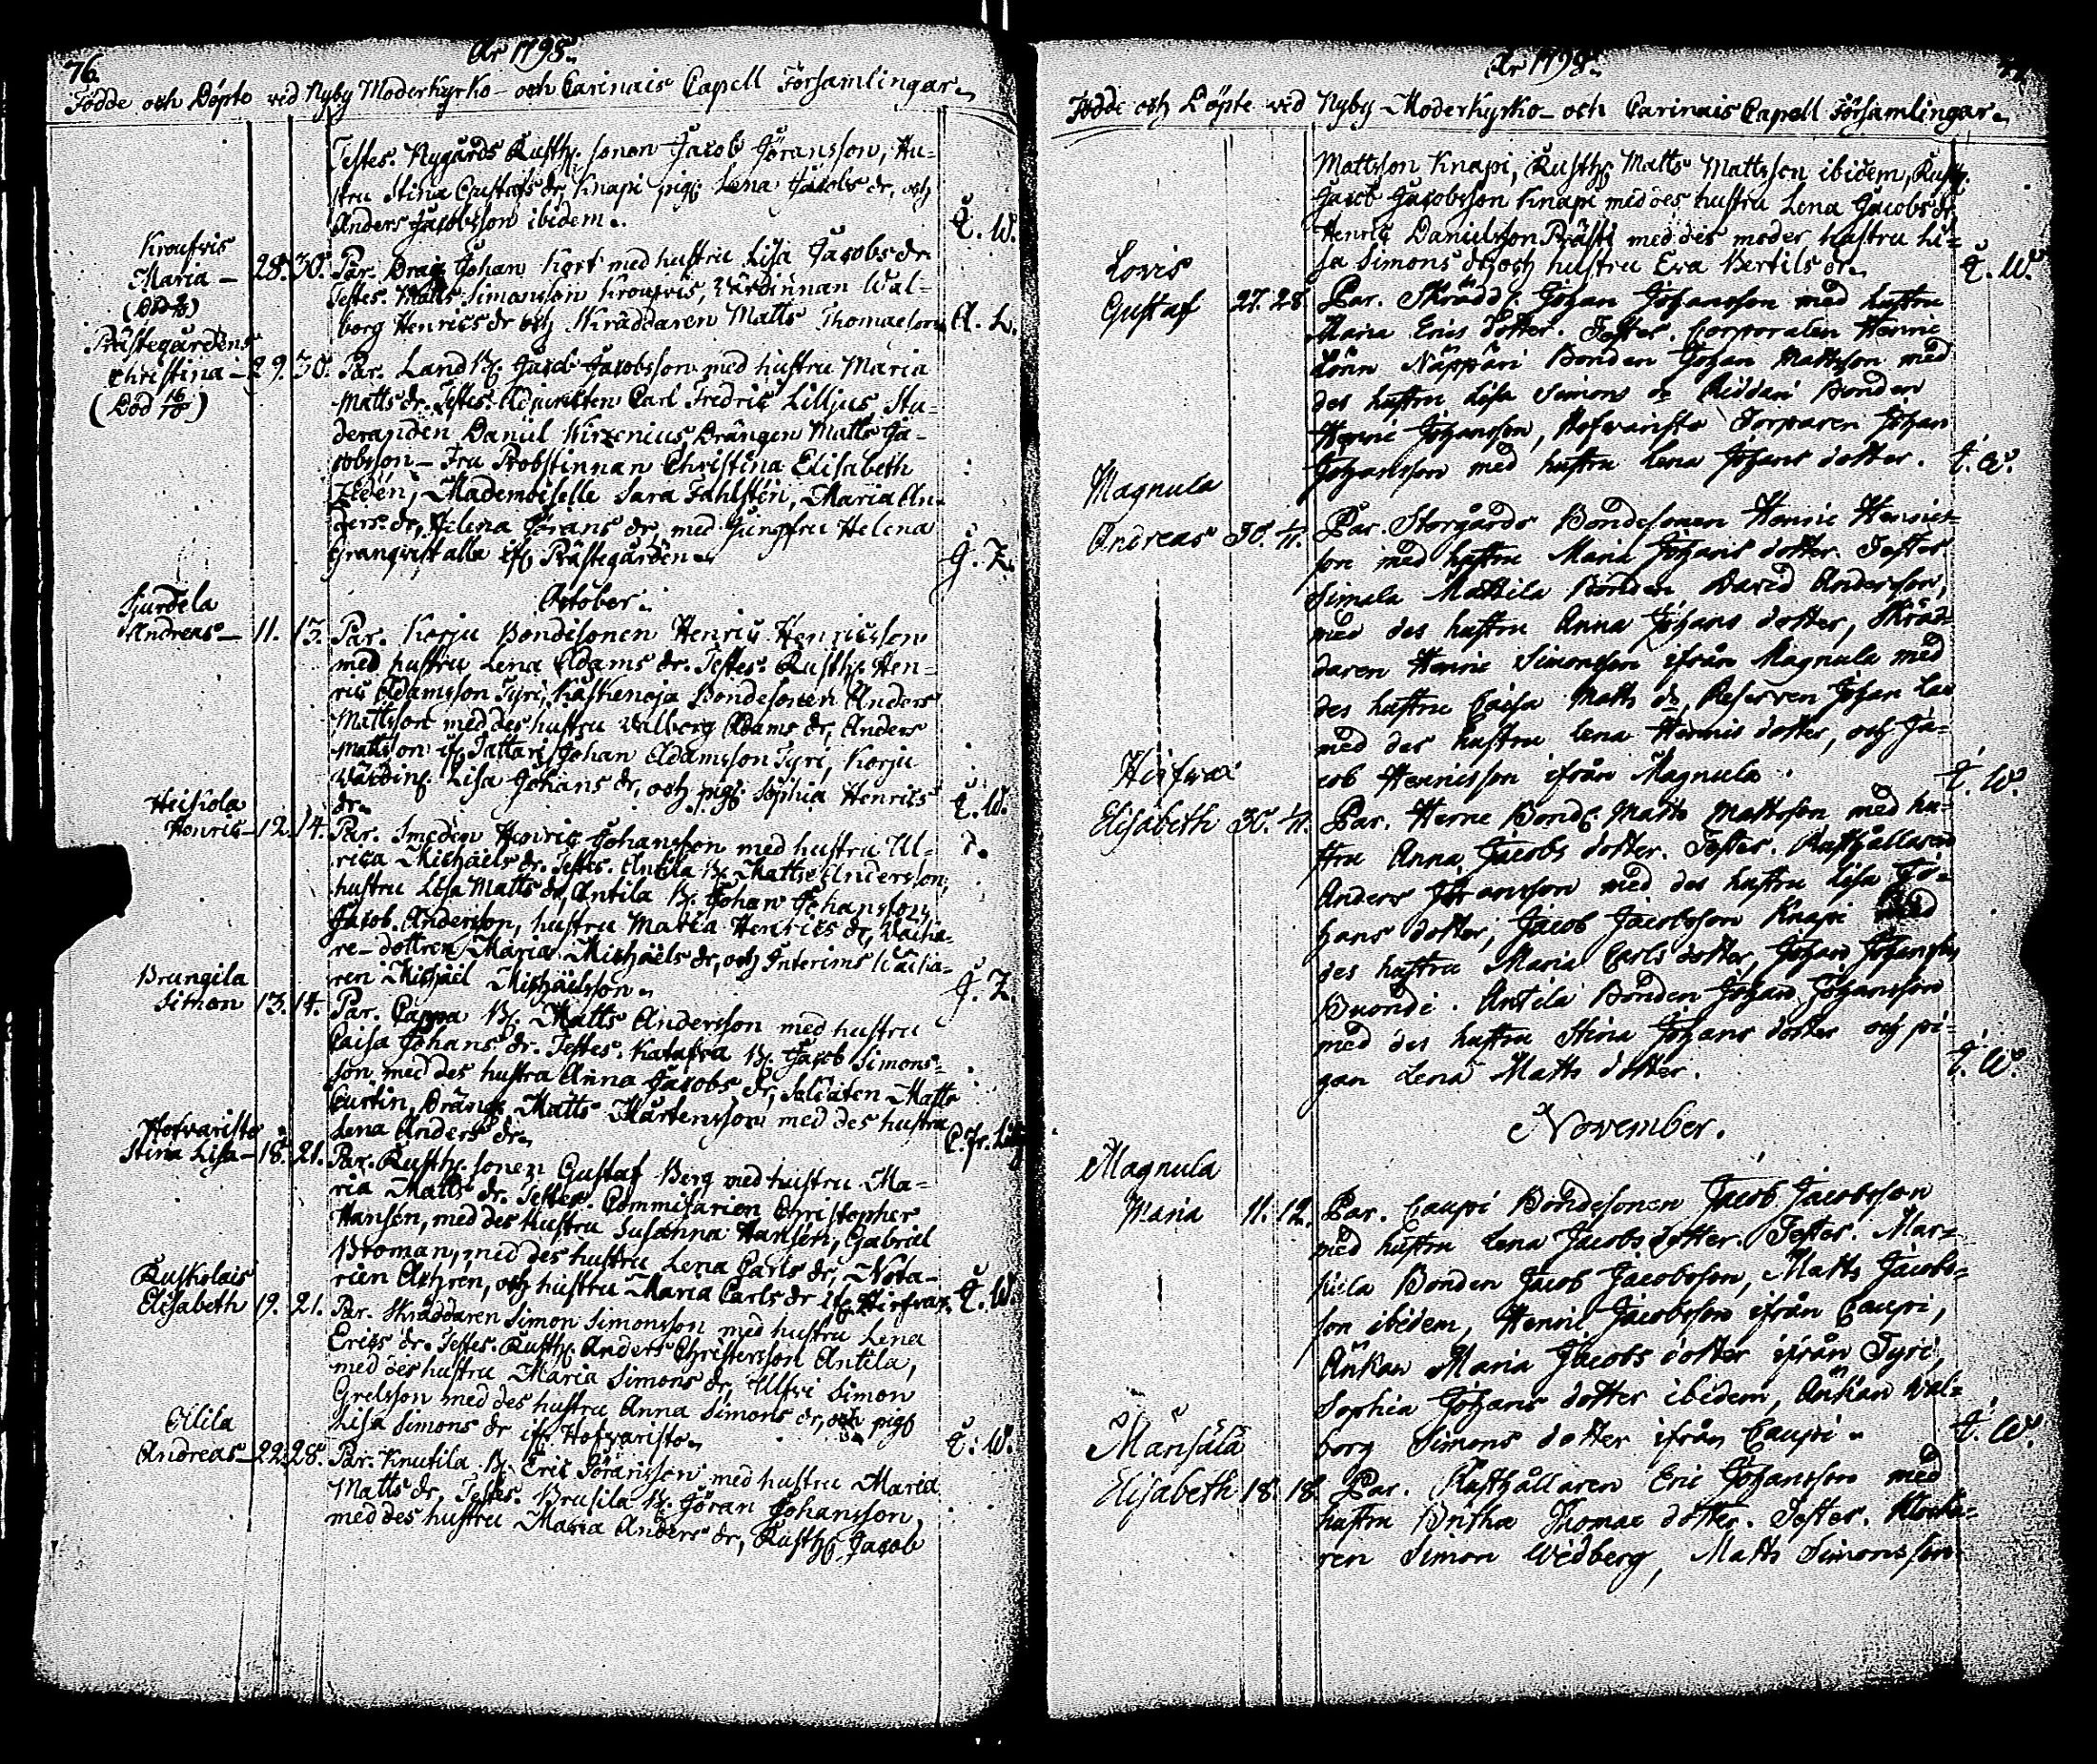 76.
År 1798.
Födde och Döpte ved Nyby Moderkyrko- och Carinais Capell Församlingar.
Testes. Nygårds Rusth. sonen Jacob Jöransson, Hu-
stru Stina Gustafs dr, Knapi pig. Lena Jacobs dr, och
Anders Jacobsson ibidem.
W.
Kroufvis
Maria - 28. 30. Par. Dräg. Johan Kort med hustru Lisa Jacobs dr
(Död)
Testes. Matts Simonsson Kroufvis, Värdinnan Wal-
borg Henrics dr och Skräddaren Matts Thomasson. A. L.
Prästegårdens
Christina - 29. 30. Par. Landb. Jacob Jacobsson med hustru Maria
(Död 16/10)
Matts dr. Testes. Adjuncten Carl Fredric Lilljus, Stu-
deranden Daniel Wirzenius, Drängen Matts Ja-
cobsson - Fru Probstinnan Christina Elisabeth
Mademoiselle Sara Fahlstén, Maria An-
ders dr, Helena Görans dr, med Jungfru Helena
Granqvist alla if. Prästegården.
J. Z.
October.
Sjurdela
Andreas - 11. 13. Par. Korju Bondesonen Henric Henricsson
med hustru Lena Adams dr. Testes. Rusth. Hen-
ric Adamsson Tyri, Kaskenoja Bondesonen Anders
Mattsson med des hustru Valborg Adams dr, Anders
Mattsson if. Tattari, Johan Adamsson Tyri, Korju
Värdin. Lisa Johans dr, och pig. Sophia Henrics
dr.
W.
Heikola
Henric - 12. 14. Par. Smeden Henric Johansson med hustru Ul-
rica Michaels dr. Testes. Antila B. Matts Andersson,
hustru Lisa Matts dr, Antila B. Johan Johansson,
Jacob Andersson, hustru Maria Henrics dr,
re-dottren Maria Michaels dr, och Interims
ren Michäel Michäelsson.
J. Z.
Brungila
Simon 13. 14. Par. Cappa B. Matts Andersson med hustru
Caisa Johans dr. Testes. Katafva B. Jacob Simons-
son med des hustru Anna Jacobs dr, Soldaten Matts
Curtin, Dräng. Matts Mårtensson med des hustru
Lena Anders dr.
C. Fr. Lilj
Hofvaristo
Stina Lisa - 18. 21. Par. Rusth. sonen Gustaf Berg med hustru Ma-
ria Matts dr. Testes. Commisarien Christopher
Hansén, med des hustru Susanna Hansén, Gabriel
Broman, med des hustru Lena Carls dr, Nota-
rien Achrén, och hustru Maria Carls dr if. Hirfvax.
W.
Ruskolais
Elisabeth 19. 21. Par. Skräddaren Simon Simonsson med hustru Lena
Erics dr. Testes. Rusth. Anders Christersson Antila,
med des hustru Maria Simons dr, Ulfvi Simon
Grelsson med des hustru Anna Simons dr, och pig.
Lisa Simons dr if. Hofvaristo.
W.
Allila
Andreas - 22. 28. Par. Knutila B. Eric Jöransson med hustru Maria
Matts dr. Testes. Brusila B. Jöran Johansson,
med des hustru Maria Anders dr, Rusth. Jacob
År 1798.
Födde och Döpte ved Nyby Moderkyrko- och Carinais Capell Församlingar.
Mattsson Knapi, Rusth. Matts Mattsson ibidem, Rusth.
Jacob Jacobsson Knapi med des hustru Lena Jacobs dr,
Henric Danielsson Prästi med des moder hustru Li-
sa Simons dr och hustru Eva Bertils dr.
W.
Lovis
Gustaf 27. 28. Par. Skrädd. Johan Johansson med hustru
Maria Erics dotter. Testes. Corporalen Henric
Lönn Näppäri Bonden Johan Mattsson med
des hustru Lisa Simons dr Riddari Bonden
Henric Johansson, Hofvaristo Torparen Johan
Johansson med hustru Lena Johans dotter.
W.
Magnula
Andreas 30. 1/11. Par. Storgårds Bondesonen Henric Henrics-
son med hustru Maria Johans dotter. Testes
Simala Mattila Bonden David Andersson,
med des hustru Anna Johans dotter, Skräd-
daren Henric Simonsson ifrån Magnula med
des hustru Caisa Matts dr, Reserven Johan
med des hustru Lena Henrics dotter, och Ja-
cob Henricsson ifrån Magnula.
W.
Hirfvax
Elisabeth 30. 1/11. Par. Herne Bond. Matts Mattsson med hu-
stru Anna Jacobs dotter. Testes. Rusthållaren
Anders Jöransson med des hustru Lisa Jo-
hans dotter, Jacob Jacobsson Knapi med
des hustru Maria Carls dotter, Johan Johansson
Buondi. Antila Bonden Johan Johansson
med des hustru Stina Johans dotter och pi-
gan Lena Matts dotter.
W.
November.
Magnula
Maria 11. 12. Par. Caupi Bondesonen Jacob Jacobsson
med hustru Lena Jacobs dotter. Testes. Mar-
kula Bonden Jacob Jacobsson, Matts Jacobs-
son ibidem, Henric Jacobsson ifrån Caupi,
Änkan Maria Jacobs dotter ifrån Tyri,
Sophia Johans dotter ibidem, Änkan Wal-
borg Simons dotter ifrån Caupi.
W.
Mänsälä
Elisabeth 18. 18 Par. Rusthållaren Eric Johansson med
hustru Britha Thomae dotter. Testes. Klocka-
ren Simon Wedberg, Matts Simonsson